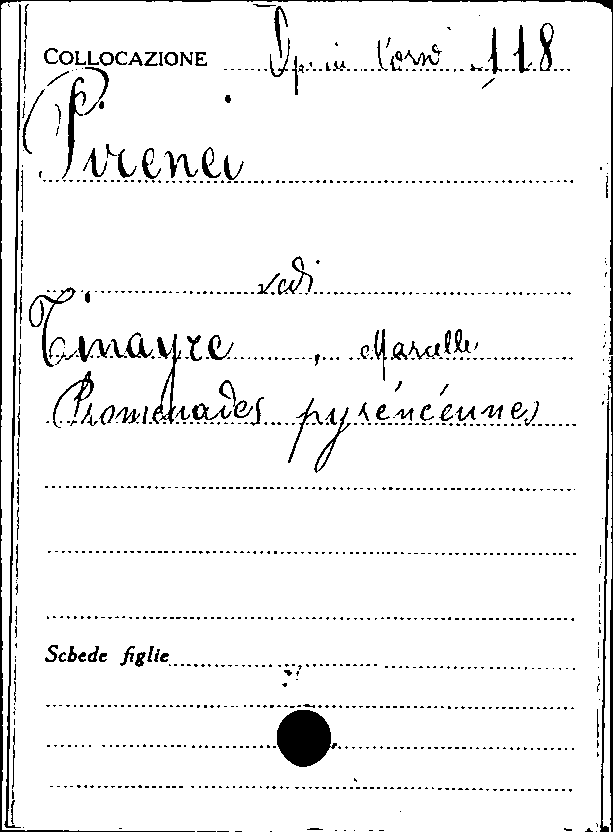 COLLOCAZIONE Op. in Corso 118
Pirenei
vedi
Tinayre, Marcelle
Promenades pyrénéennes
Schede figlie